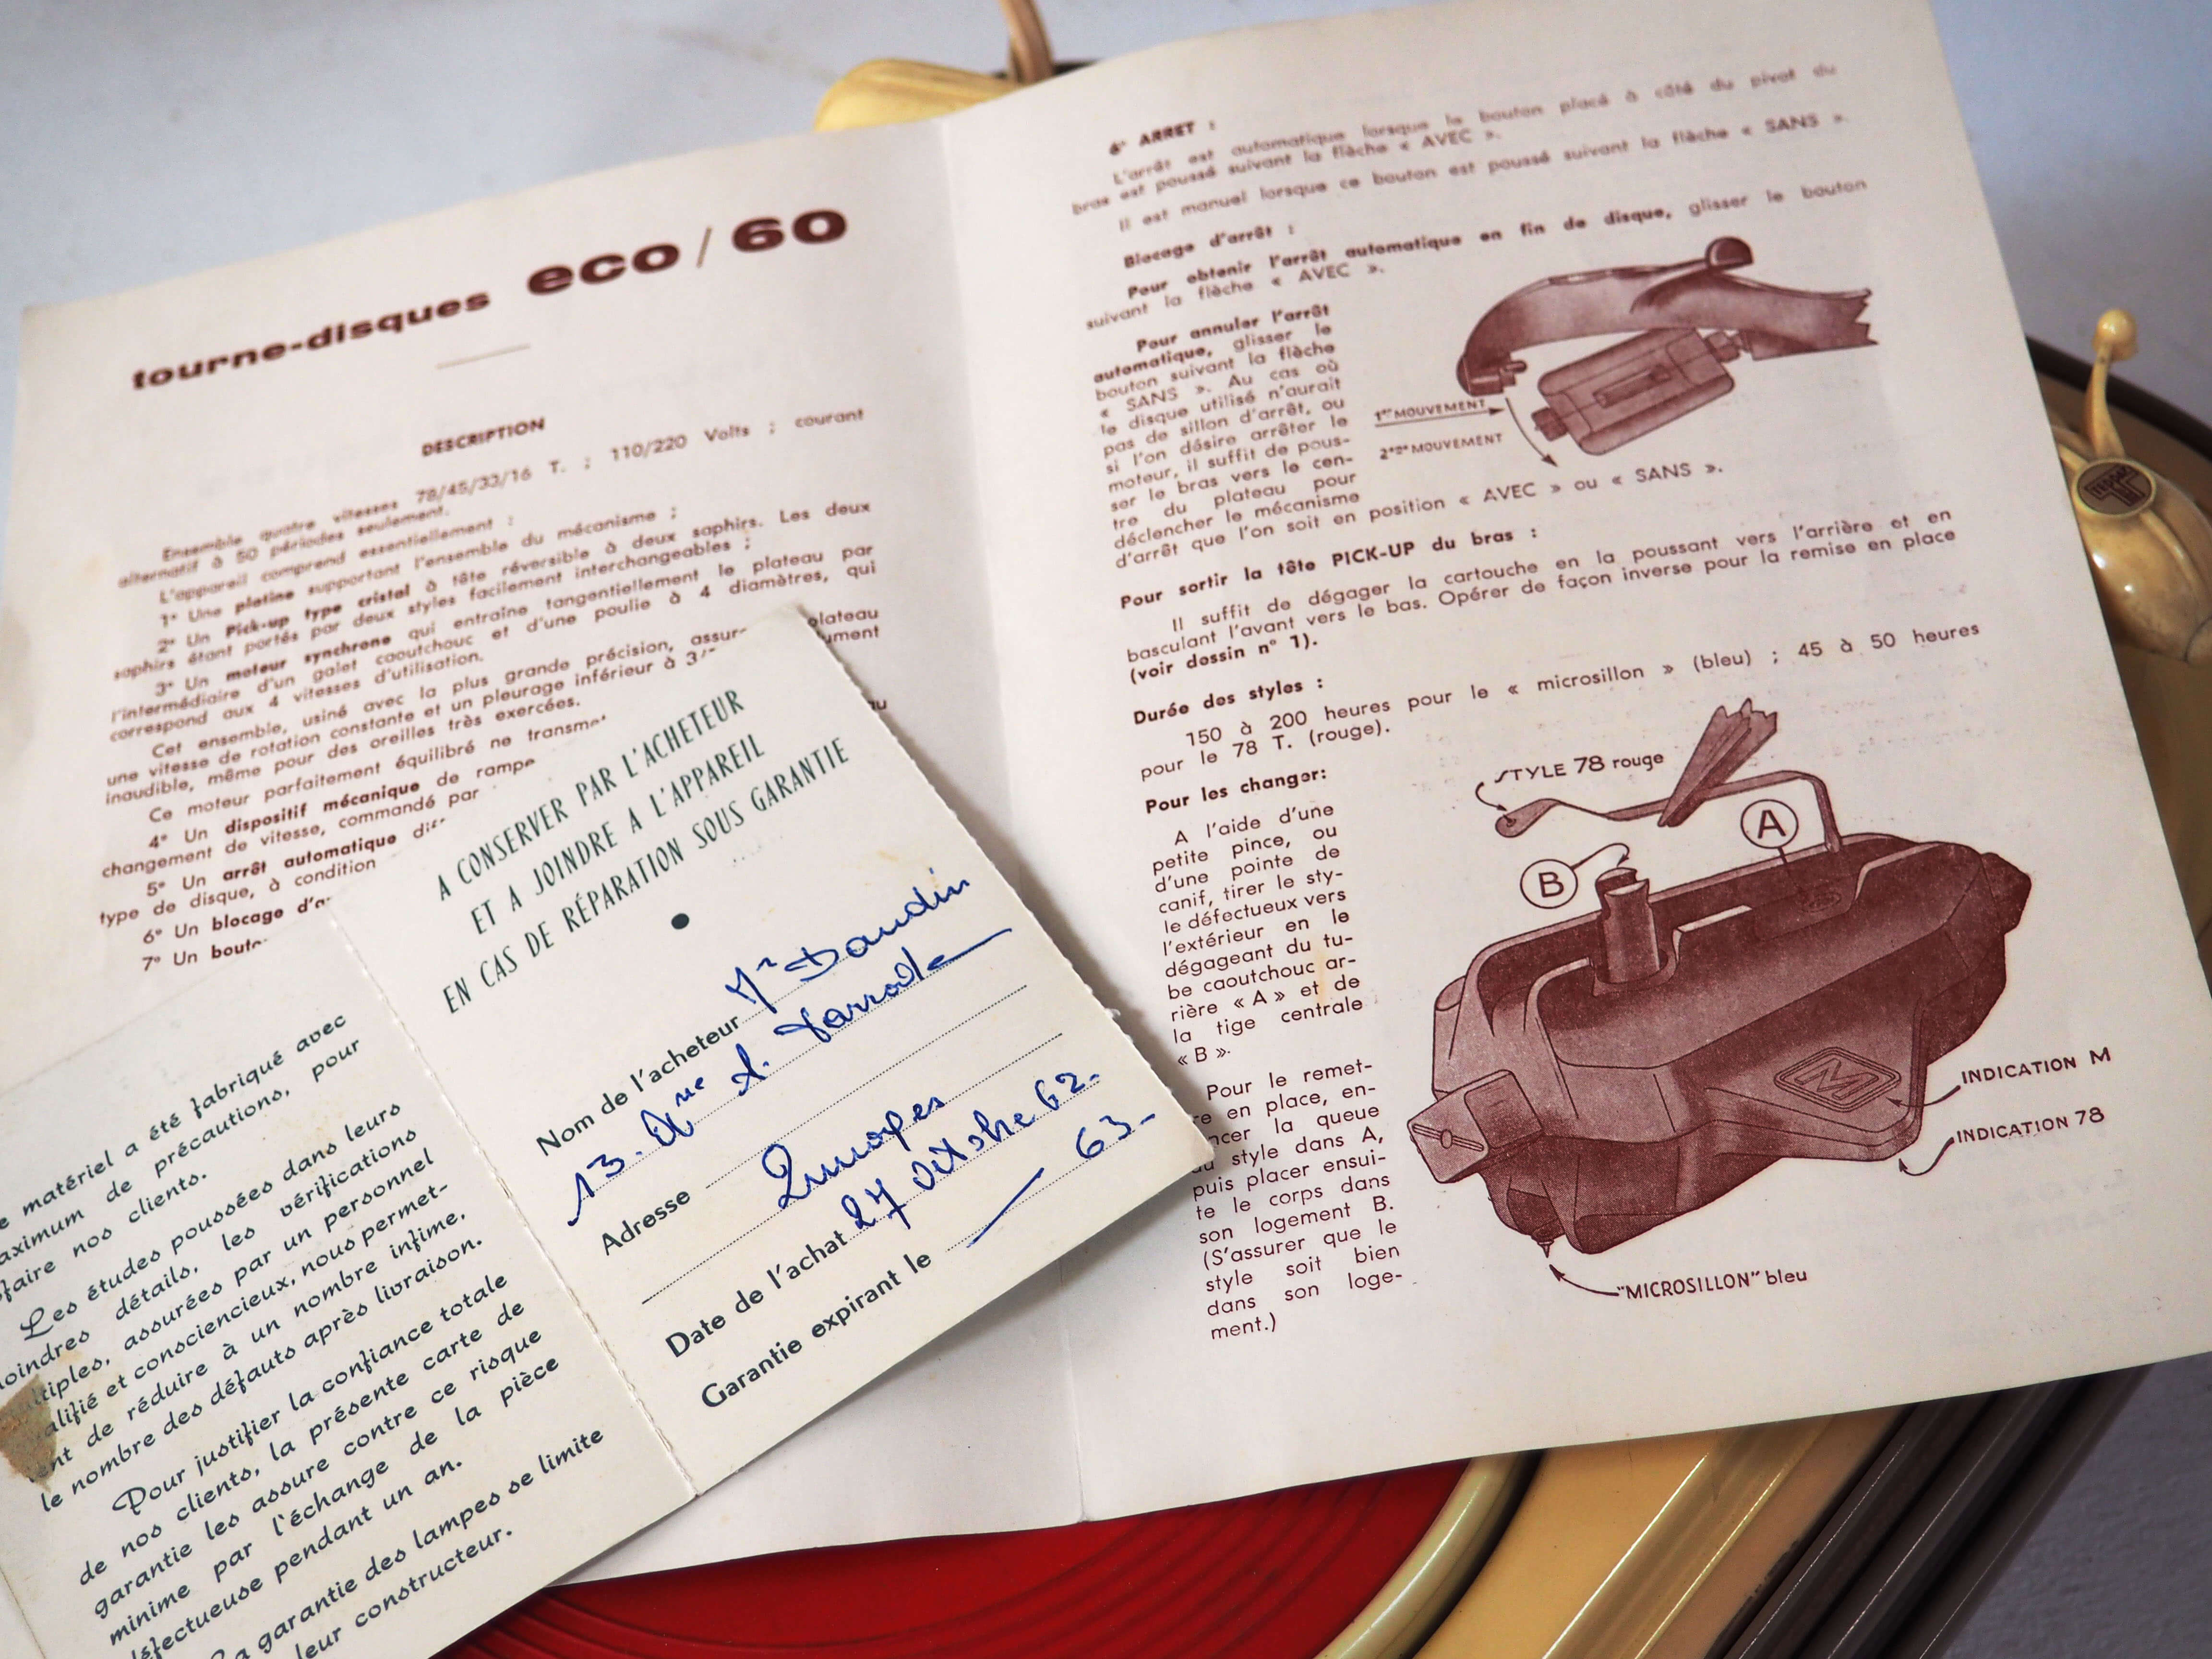 tourne-disques eco / 60
DESCRIPTION
Ensemble quatre vitesses 78/45/33/16 T. ; 110/220 Volts ; courant
alternatif à 50 périodes seulement.
L'appareil comprend essentiellement :
1° Une platine supportant l'ensemble du mécanisme ;
2° Un Pick-up type cristal à tête réversible à deux saphirs. Les deux
saphirs étant portés par deux styles facilement interchangeables ;
3° Un moteur synchrone qui entraîne tangentiellement le plateau par
l'intermédiaire d'un galet caoutchouc et d'une poulie à 4 diamètres, qui
correspond aux 4 vitesses d'utilisation.
Cet ensemble, usiné avec la plus grande précision, assure plateau
une vitesse de rotation constante et un pleurage inférieur à 3/
inaudible, même pour des oreilles très exercées.
Ce moteur parfaitement équilibré ne transme
4° Un dispositif mécanique de rampe
changement de vitesse, commandé par
5° Un arrêt automatique
type de disque, à condition
6° Un blocage
7° Un
6° ARRET :
L'arrêt est automatique lorsque le bouton placé à côté du pivot du
bras est poussé suivant la flèche « AVEC ».
Il est manuel lorsque ce bouton est poussé suivant la flèche « SANS ».
Blocage d'arrêt :
Pour obtenir l'arrêt automatique en fin de disque, glisser le bouton
suivant la flèche « AVEC ».
Pour annuler l'arrêt
automatique, glisser le
bouton suivant la flèche
« SANS ». Au cas où
le disque utilisé n'aurait
pas de sillon d'arrêt, ou
si l'on désire arrêter le
moteur, il suffit de pous-
ser le bras vers le cen-
tre du plateau pour
déclencher le mécanisme
d'arrêt que l'on soit en position « AVEC » ou « SANS ».
1er MOUVEMENT
2ème MOUVEMENT
Pour sortir la tête PICK-UP du bras :
Il suffit de dégager la cartouche en la poussant vers l'arrière et en
basculant l'avant vers le bas. Opérer de façon inverse pour la remise en place
(voir dessin n° 1).
Durée des styles :
150 à 200 heures pour le « microsillon » (bleu) ; 45 à 50 heures
pour le 78 T. (rouge).
Pour les changer:
A l'aide d'une
petite pince, ou
d'une pointe de
canif, tirer le sty-
le défectueux vers
l'extérieur en le
dégageant du tu-
be caoutchouc ar-
rière « A » et de
la tige centrale
« B ».
Pour le remet-
re en place, en-
ncer la queue
du style dans A,
puis placer ensui-
te le corps dans
son logement B.
(S'assurer que le
style soit bien
dans son loge-
ment.)
STYLE 78 rouge
A
B
M
INDICATION M
INDICATION 78
"MICROSILLON" bleu
A CONSERVER PAR L'ACHETEUR
ET A JOINDRE A L'APPAREIL
EN CAS DE RÉPARATION SOUS GARANTIE
Nom de l'acheteur Mr Daudin
13.
Adresse
Limoges
Date de l'achat 27 Octobre 62.
Garantie expirant le 63.
matériel a été fabriqué avec
de précautions, pour
faire nos clients.
Les études poussées dans leurs
détails, les vérifications
assurées par un personnel
et consciencieux, nous permet-
de réduire à un nombre infime,
le nombre des défauts après livraison.
Pour justifier la confiance totale
de nos clients, la présente carte de
garantie les assure contre ce risque
minime par l'échange de la pièce
défectueuse pendant un an.
garantie des lampes se limite
leur constructeur.